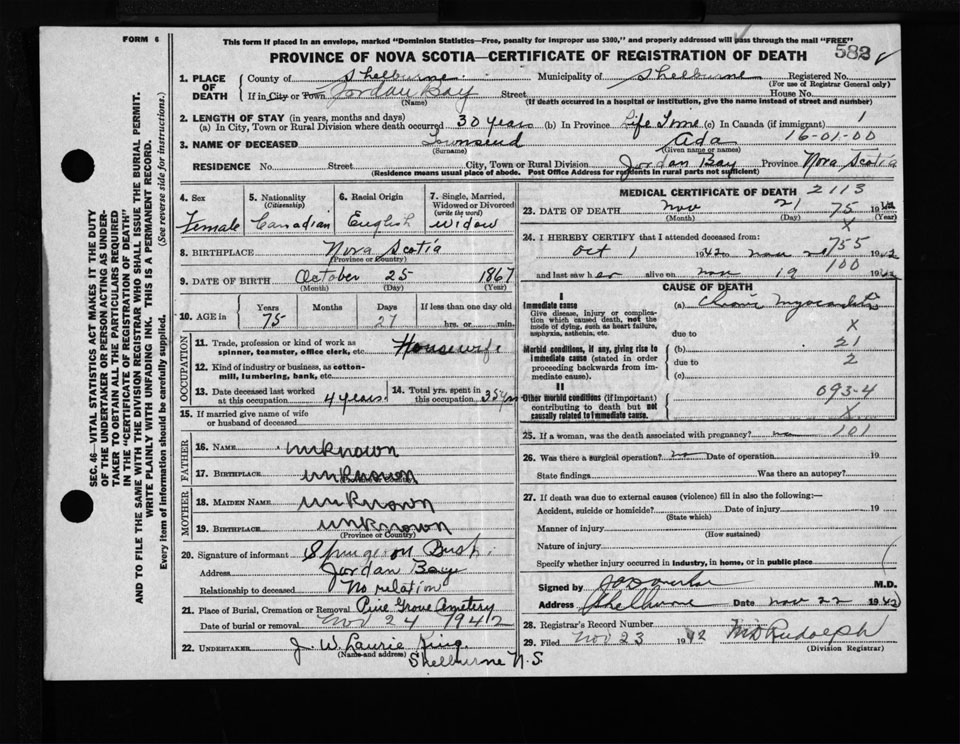 FORM 6
This form if placed in an envelope, marked "Dominion Statistics—Free, penalty for improper use $300," and properly addressed will pass through the mail "FREE"
PROVINCE OF NOVA SCOTIA—CERTIFICATE OF REGISTRATION OF DEATH
582
1. PLACE OF DEATH
County of Shelburne Municipality of Shelburne Registered No.
(For use of Registrar General only)
If in City or Town Jordan Bay Street House No.
(Name) (If death occurred in a hospital or institution, give the name instead of street and number)
2. LENGTH OF STAY (in years, months and days)
(a) In City, Town or Rural Division where death occurred 30 years (b) In Province Life Time (c) In Canada (if immigrant) 1
16-01-00
3. NAME OF DECEASED Townsend Ada
(Surname) (Given name or names)
RESIDENCE No. Street City, Town or Rural Division Jordan Bay Province Nova Scotia
(Residence means usual place of abode. Post Office Address for residents in rural parts not sufficient)
4. Sex
Female
5. Nationality
(Citizenship)
Canadian
6. Racial Origin
English
7. Single, Married, Widowed or Divorced
(write the word)
Widow
8. BIRTHPLACE Nova Scotia
(Province or Country)
9. DATE OF BIRTH October 25 1867
(Month) (Day) (Year)
10. AGE in Years Months Days If less than one day old
75 27 hrs. or min.
OCCUPATION
11. Trade, profession or kind of work as spinner, teamster, office clerk, etc. Housewife
12. Kind of industry or business, as cotton-mill, lumbering, bank, etc.
13. Date deceased last worked at this occupation 4 years.
14. Total yrs. spent in this occupation 35 yrs
15. If married give name of wife or husband of deceased
FATHER
16. NAME unknown
17. BIRTHPLACE unknown
MOTHER
18. MAIDEN NAME unknown
19. BIRTHPLACE unknown
(Province or Country)
20. Signature of informant Spurgeon Bush
Address Jordan Bay
Relationship to deceased No relation
21. Place of Burial, Cremation or Removal Pine Grove Cemetery
Date of burial or removal Nov 24 1942
22. UNDERTAKER J. W. Laurie King.
(Name and address) Shelburne N.S.
MEDICAL CERTIFICATE OF DEATH 2113
23. DATE OF DEATH Nov 21 75 1942
(Month) (Day) (Year)
X
24. I HEREBY CERTIFY that I attended deceased from: 755
Oct 1 1942 to Nov 21 1942
100
and last saw her alive on Nov 19 1942
CAUSE OF DEATH
I
Immediate cause
Give disease, injury or complication which caused death, not the mode of dying, such as heart failure, asphyxia, asthenia, etc.
(a) Chronic Myocarditis
X
due to
21
Morbid conditions, if any, giving rise to immediate cause (stated in order proceeding backwards from immediate cause).
(b)
due to 2
(c)
II
093-4
Other morbid conditions (if important) contributing to death but not causally related to immediate cause.
X
25. If a woman, was the death associated with pregnancy? no 101
26. Was there a surgical operation? no Date of operation 19
State findings Was there an autopsy?
27. If death was due to external causes (violence) fill in also the following:—
Accident, suicide or homicide? Date of injury 19
(State which)
Manner of injury
(How sustained)
Nature of injury
Specify whether injury occurred in industry, in home, or in public place
Signed by M.D.
Address Shelburne Date Nov 22 1942
28. Registrar's Record Number
29. Filed Nov 23 1942 Rudolph
(Division Registrar)
SEC. 46—VITAL STATISTICS ACT MAKES IT THE DUTY
OF THE UNDERTAKER OR PERSON ACTING AS UNDER-
TAKER TO OBTAIN ALL THE PARTICULARS REQUIRED
IN THE "CERTIFICATE OF REGISTRATION OF DEATH"
AND TO FILE THE SAME WITH THE DIVISION REGISTRAR WHO SHALL ISSUE THE BURIAL PERMIT.
WRITE PLAINLY WITH UNFADING INK. THIS IS A PERMANENT RECORD.
Every item of information should be carefully supplied. (See reverse side for instructions.)